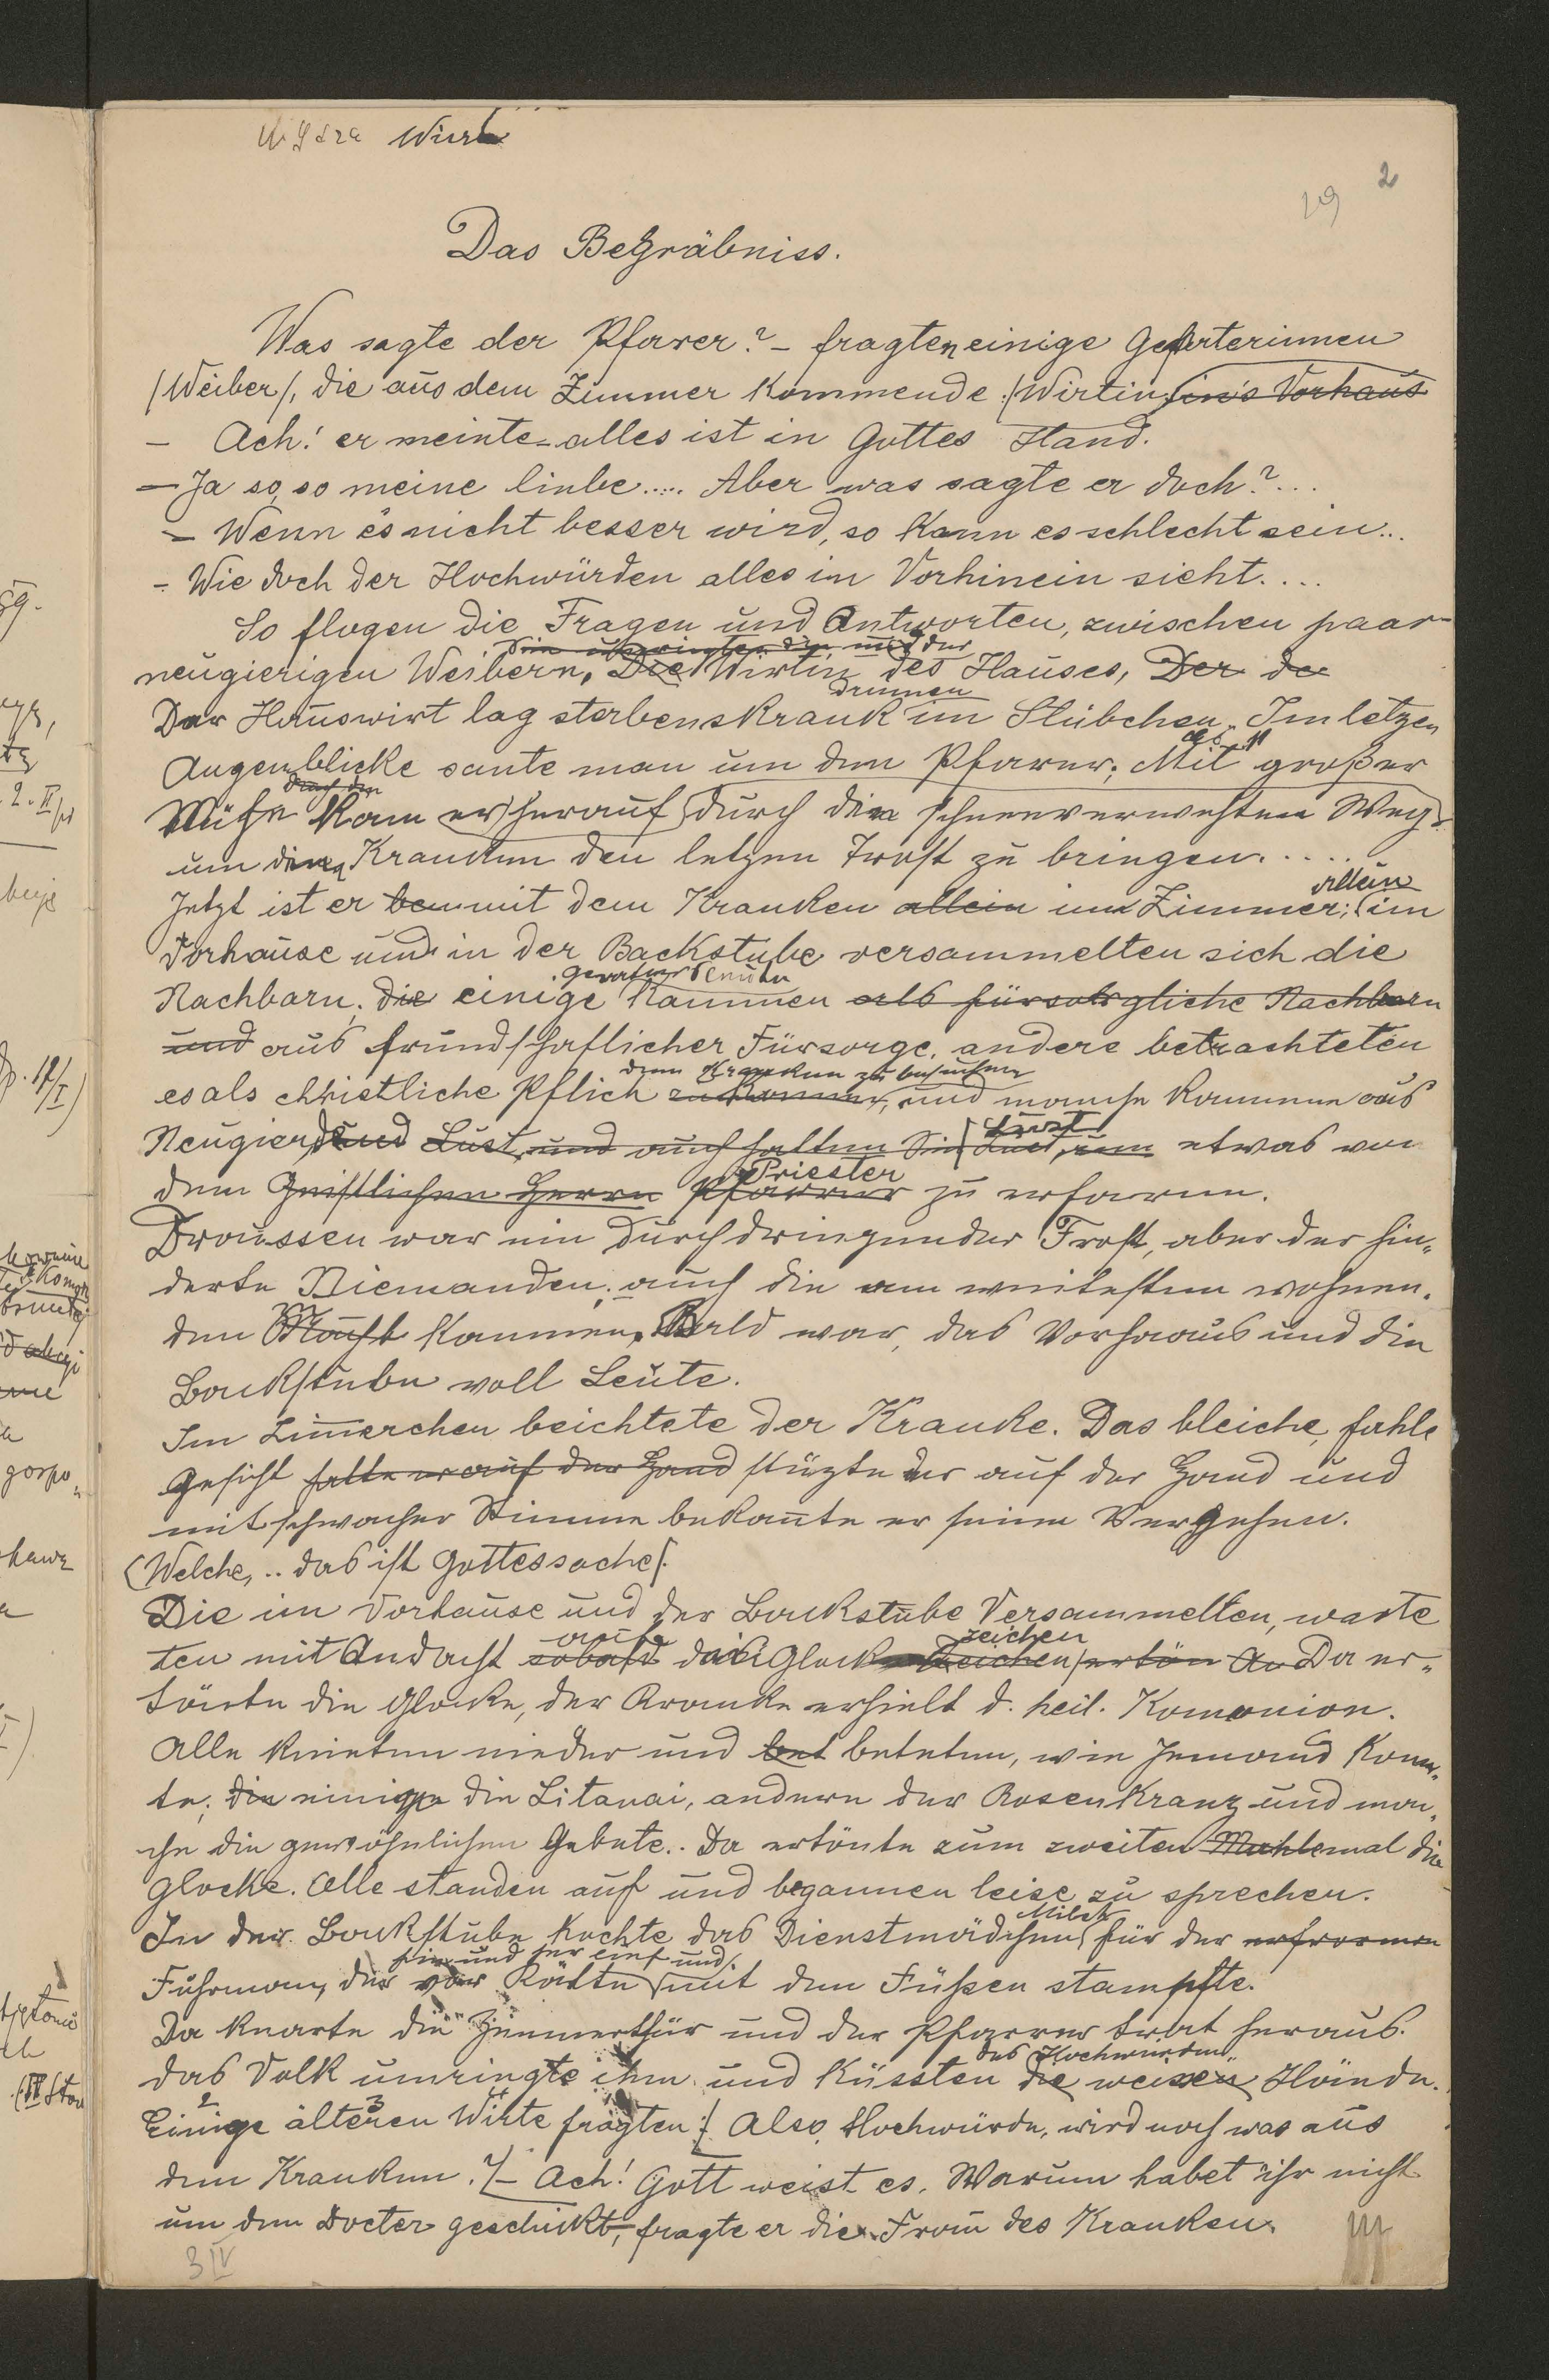 Wiert
2
29
Das Begräbniss.
Was sagte der Pfarer? – fragten einige Gefarterinnen
/Weiber/, die aus dem Zimmer kommende /Wirtin. in's Vorhaus
– Ach! er meinte – alles ist in Gottes Hand.
– Ja so, so meine liebe..... Aber was sagte er doch?...
– Wenn es nicht besser wird, so kann es schlecht sein...
– Wie doch der Hochwürden alles im Vorhinein sieht....
So flogen die Fragen und Antworten, zwischen paar
neugierigen Weibern, Die Wirtin des Hauses, Der de
drinnen
Der Hauswirt lag sterbenskrank im Stübchen. Im letzen
Augenblicke sante man um den Pfarer; Mit großer
durch den
Mühe kam er herauf durch den schneeverwehten Weg
um den Kranken den letzen Trost zu bringen.....
allein
Jetzt ist er bem mit dem Kranken allein im Zimmer; im
Vorhause und in der Backstube versammelten sich die
Nachbarn. die einige kammen als fürsorgliche Nachbarn
und aus freundschaftlicher Fürsorge, andere betrachteten
dem Kranken zu besuchen
es als christliche Pflich zu kommen, und manche kammen aus
Neugierde und Lust, und auch hatten Sie Lust, um etwas von
Priester
dem Geistlichen Herrn Pfarrer zu erfaren.
Draussen war ein durchdringender Frost, aber der hin„
derte Niemanden; auch die am weitesten wohnen„
den kammen. Bald war, das Vorhaus und die
Backstube voll Leute.
Im Zimmerchen beichtete der Kranke. Das bleiche, fahle
Gesicht hatte er auf der Hand stüzte er auf der Hand und
mit schwacher Stimme bekannte er seine Vergehen.
(Welche, .. das ist Gottessache/.
Die im Vorhause und der Backstube Versammelten, warte
auf zeichen
ten mit Andacht sobald das Glocken Zeichen ertön An Da er„
tönte die Glocke, der Kranke erhielt d. heil. Komonion.
Alle knieten nieder und bet beteten, wie Jemand konn„
te; die einige die Litanai, andere der Rosenkranz und man„
che die gewöhnlichen Gebete.. Da ertönte zum zweiten Mahle mal die
Glocke. Alle standen auf und begannen leise zu sprechen.
Milch
In der Backstube kochte das Dienstmädchen für der erfrornen
hin und her lief und
Fuhrman, der vor Kälte mit den Füßen stampfte.
Da knarte die Zimmerthür und der Pfarrer trat heraus.
des Hochwürden
das Volk umringte ihm und küssten die weisen Hände.
2 3
Einige älteren Wirte fragten: / Also, Hochwürde, wird noch was aus
dem Kranken? /– Ach! Gott weist es. Warum habet ihr nicht
um den Docter geschickt, fragte er die Frau des Kranken.
3 IV